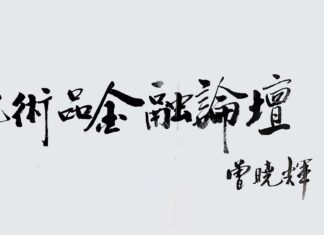 術品金融論壇
曾曉輝